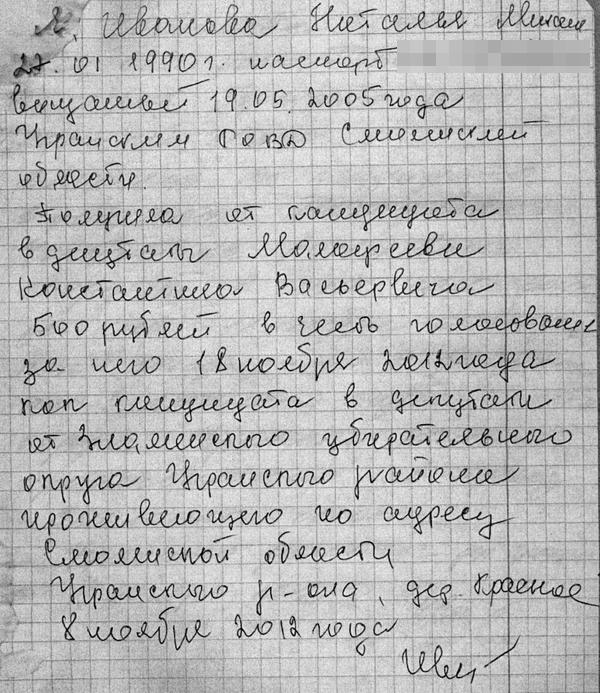 Я, Иванова Наталья Михай
27.01 1990г. паспорт
выданный 19.05.2005 года
Угранским РОВД Смоленской
области.
Получила от кандидата
в депутаты Малофеева
Константина Валерьевича
500 рублей в честь голосования
за него 18 ноября 2012 года
как кандидата в депутаты
от Знаменского избирательного
округа Угранского района
проживающего по адресу
Смоленской области
Угранского р-она, дер. Красное
8 ноября 2012 года